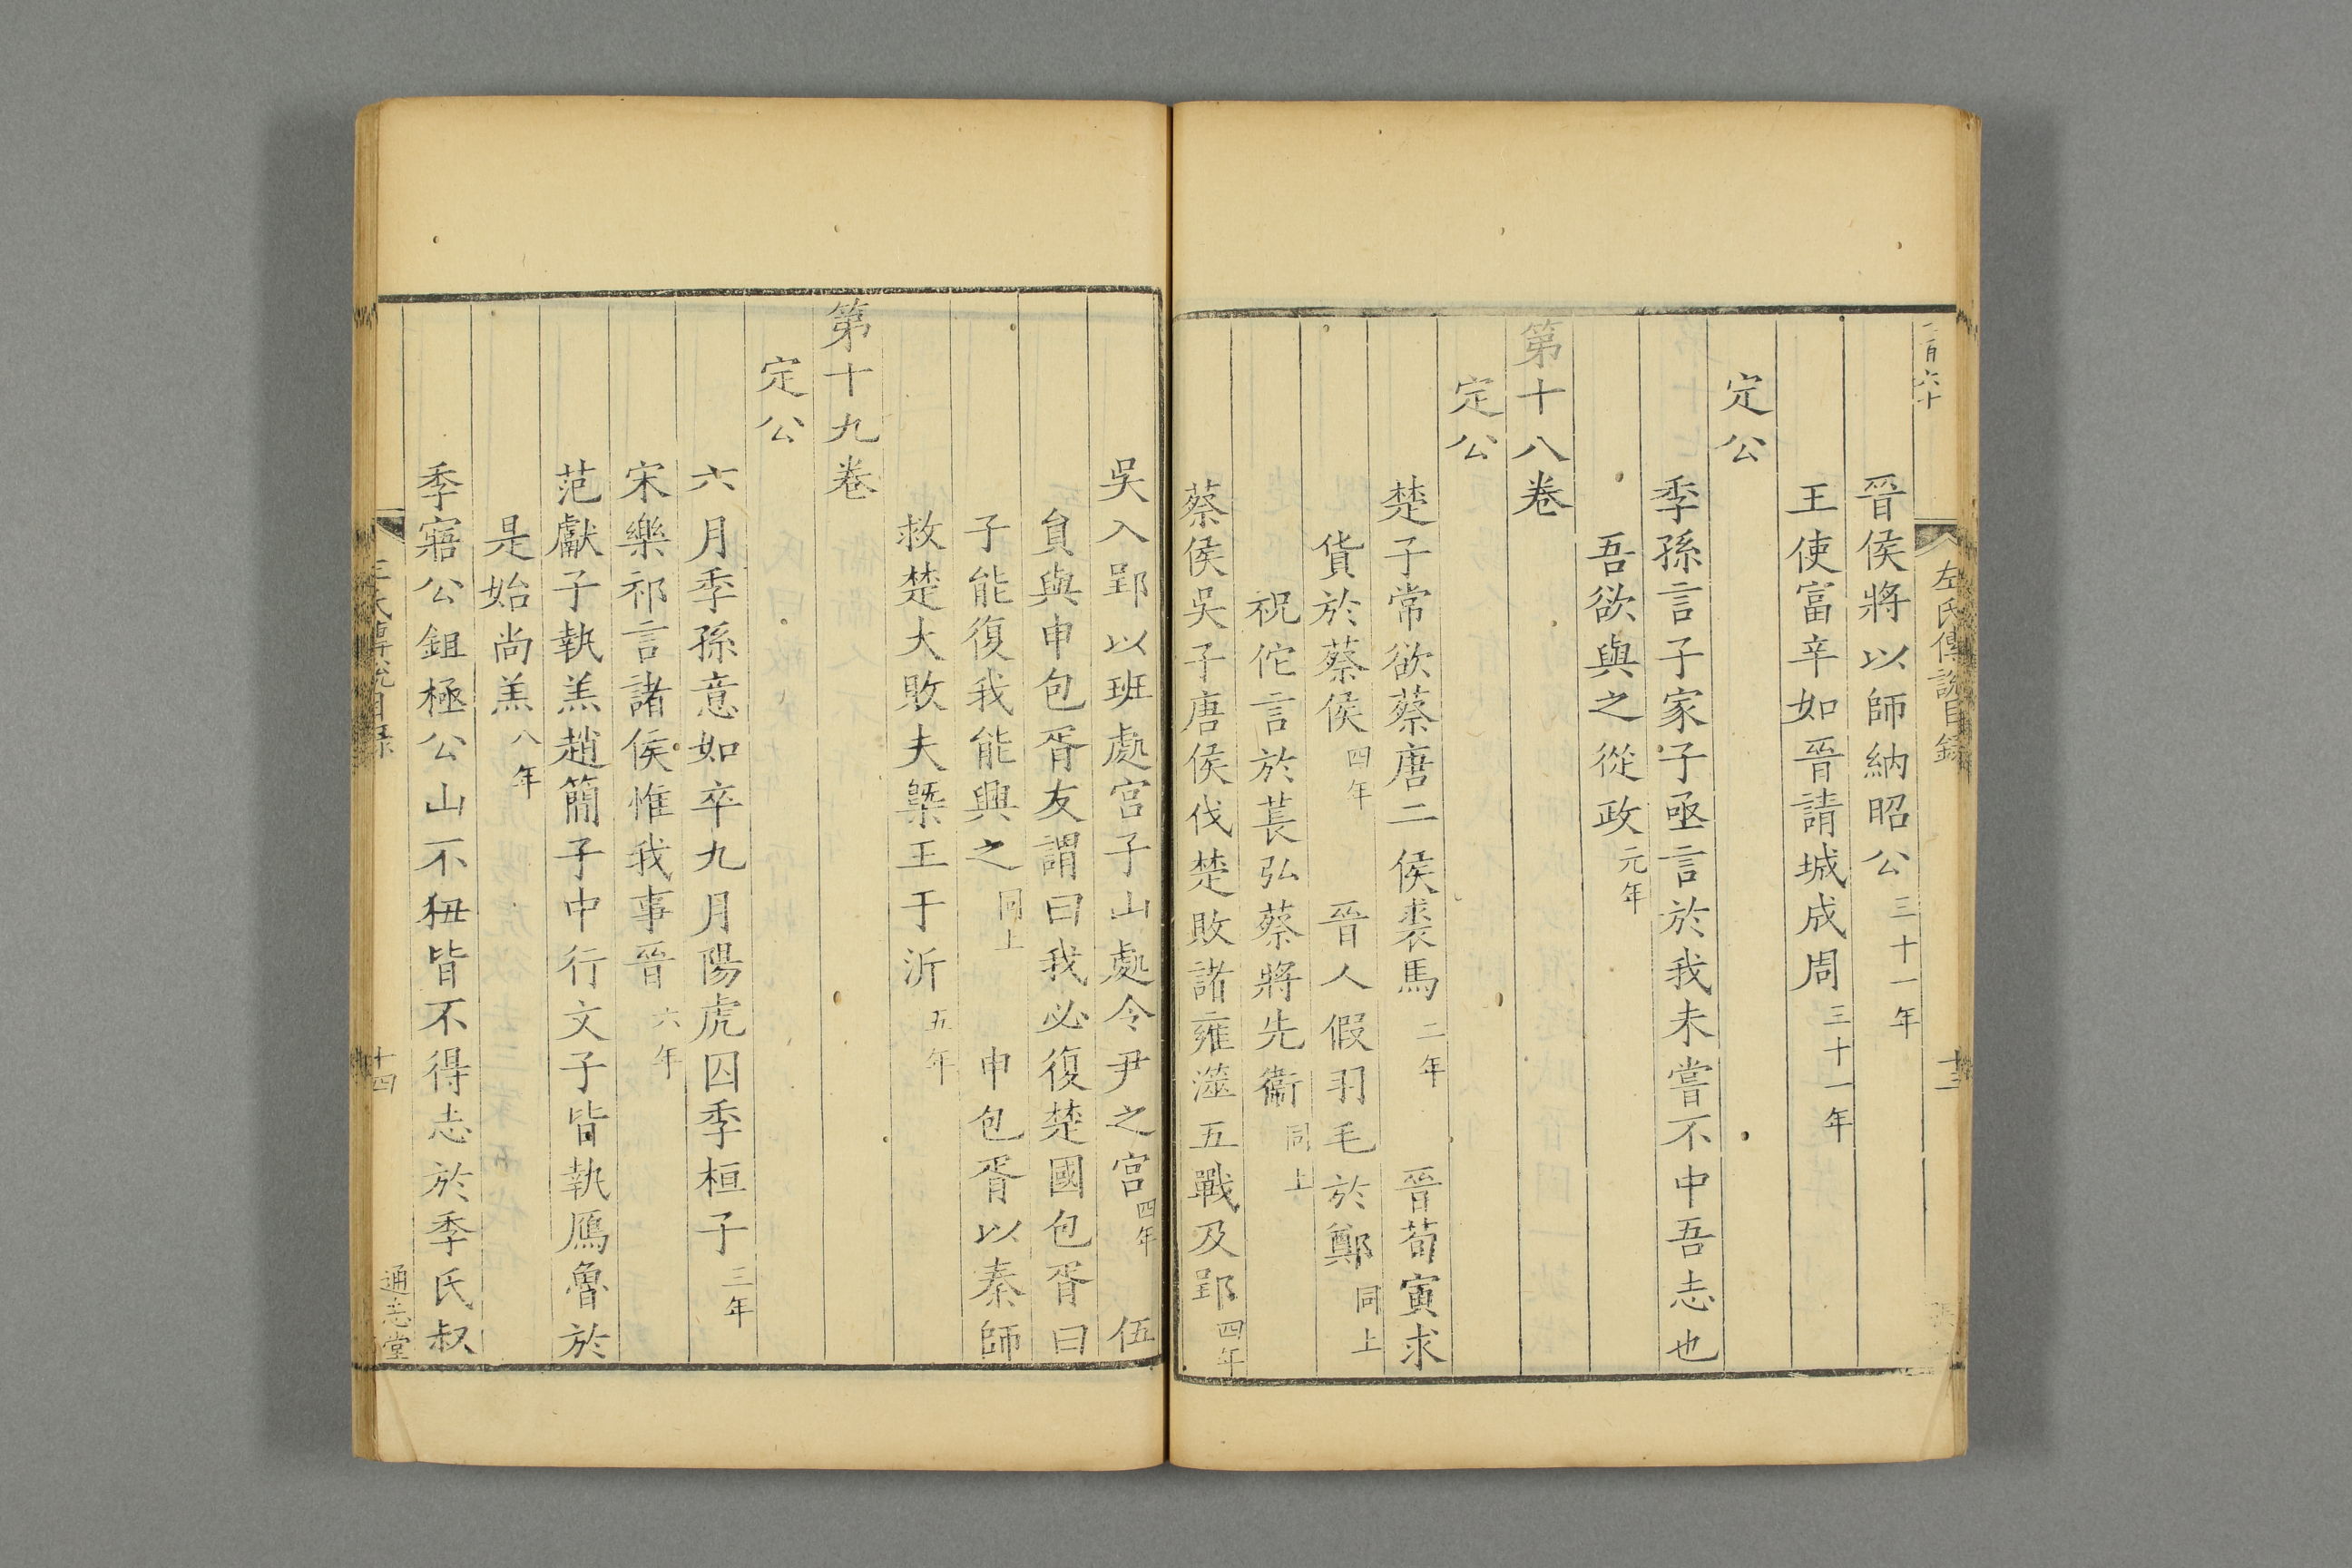 左氏傳說目錄
晉侯將以師納昭公三十一年
王使富辛如晉請城成周三十一年
定公
季孫言子家子亟言於我未嘗不中吾志也
吾欲與之從政元年
第十八卷
定公
楚子常欲蔡唐二侯裘馬二年 晉荀寅求
貨於蔡侯四年 晉人假羽毛於鄭同上
祝佗言於萇弘蔡將先衞同上
蔡侯吳子唐侯伐楚敗諸雍澨五戰及郢四年
吳入郢以班處宮子山處令尹之宮四年 伍
貟與申包胥友謂曰我必復楚國包胥曰
子能復我能興之同上 申包胥以秦師
救楚大敗夫槩王于沂五年
第十九卷
定公
六月季孫意如卒九月陽虎囚季桓子三年
宋樂祁言諸侯惟我事晉六年
范獻子執羔趙簡子中行文子皆執鴈魯於
是始尚羔八年
季寤公鉏極公山不狃皆不得志於季氏叔
氏傳說目錄 十四 通志堂